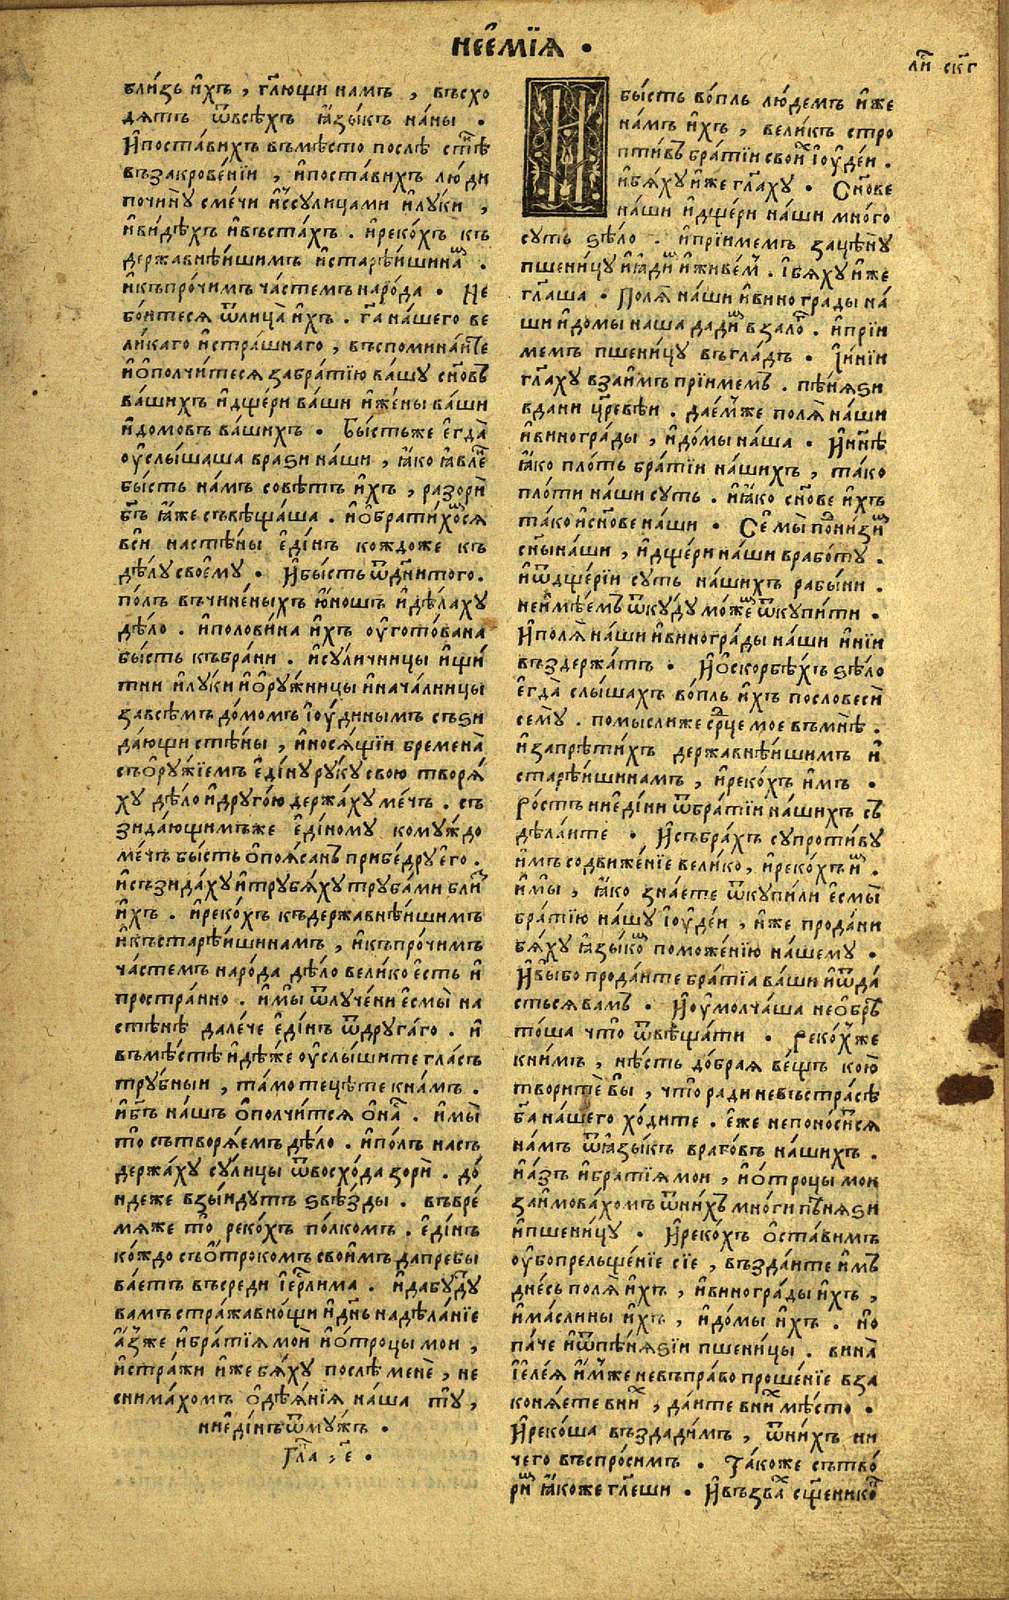 неємїѧ ·
ли҇ ск҃г
бли́зь и҆́хъ , гл҃ющи намъ , въсхо
дѧтъ ѿвсѣхъ ꙗ҆зы́къ на́ны ·
И҆поста́вихъ въмѣ́сто послѣ стѣ́
въза́кровенїи , и҆поста́вихъ лю́ди
почи́ну смечи и҆ссулицами и҆лу́ки ,
и҆ви́дѣхъ и҆въста́хъ . и҆реко́хъ къ
держа́внѣишимъ и҆старѣ́ишинаⷨ .
и҆къпро́чимъ ча́стемъ наро́да · Не
бо́итесѧ ѿлица̀ и҆́хъ . га҃ на́шего ве
ли́каго и҆стра́шнаго , въспомина́ите
и҆ѻ҆полчи́тесѧ забра́тїю ва́шу сн҃овъ
ва́шихъ и҆дще́ри ва́ши и҆же́ны ва́ши
и҆домо́въ ва́шихъ · Бы́стьже е҆гда̀
ѹ҆слы́шаша враѕи на́ши , ꙗ҆́ко ꙗ҆вле́
бысть на́мъ совѣ́тъ и҆́хъ , разорѝ
бг҃ъ ꙗ҆́же съвѣща́ша . и҆ѻ҆брати́хоⷨсѧ
вси на стѣ́ны е҆ди́нъ ко́ждоже къ
дѣ́лу своемꙋ · И҆бы́сть ѿдн҃и того .
по́лъ въчине́ныхъ ю҆́ношъ и҆дѣ́лаху
дѣ́ло . и҆полови́на и҆́хъ ѹ҆гото́вана
бы́сть къбра́ни . и҆су́личницы и҆щи́
тни и҆лу́ки и҆ѻ҆ру́жницы и҆нача́лницы
завсѣ́мъ до́момъ і҆ѹ́динымъ съѕи
да́ющи стѣ́ны , и҆носѧ́щїи бремена̀
съѻ҆ру́жїемъ е҆ди́ну ру́ку свою творѧ́
ху дѣ́ло и҆друго́ю держа́ху ме́чъ . съ
зида́ющимъже е҆ди́ному кому́ждо
ме́чъ бы́сть ѻ҆поѧ́санъ прибе́дру е҆го .
и҆съзида́ху и҆трубѧ́ху труба́ми бли́ⷥ
и҆́хъ . и҆реко́хъ къдержа́внѣишимъ
и҆къстарѣ́ишинамъ , и҆къпро́чимъ
ча́стемъ наро́да дѣ́ло вели́ко е҆сть и҆
простра́нно . и҆мы̀ ѿлуче́ни е҆смы̀ на
стѣ́нѣ дале́че е҆ди́нъ ѿдруга́го . и҆
въмѣ́стѣ и҆дѣ́же ѹ҆слы́шите гла́съ
тру́бныи , та́мо тецѣ́те кна́мъ .
и҆бг҃ъ на́шъ ѻ҆полчи́тсѧ ѻ҆на́ⷭ . и҆мы̀
то̀ сътворѧ́емъ дѣ́ло . и҆по́лъ на́съ
держа́ху су́лицы ѿвосхо́да зорѝ . до́
идеже взы́идутъ ѕвѣ́зды . въвре́
мѧже то̀ реко́хъ по́лкомъ . е҆ди́нъ
ко́ждо съѻ҆́трокомъ свои́мъ да пребы
ва́етъ въсреди і҆ер҃лима . и҆дабу́ду
ва́мъ стра́жа внощи и҆дн҃ь надѣ́ланїе
а҆́зже и҆бра́тїѧ моѝ и҆ѻ҆́троцы мои ,
и҆стра́жи и҆́же бѧ́ху послѣ менѐ , не
снима́хомъ ѻ҆дѣѧ́нїѧ на́ша ту̀ ,
ниеди́нъ ѿму́жъ ·
Гла҇ , е҃ ·
И бы́сть во́пль лю́демъ и҆́же
на́мъ и҆́хъ , вели́къ стро
пти́въ бра́тїи свои́ⷯ і҆ѹде́и .
и҆бѧ́ху и҆́же гл҃аху · Сн҃ове
на́ши и҆дще́ри на́ши мно́го
су́ть ѕѣ́ло . и҆прїи́мемъ зацѣ́ну
пшени́цу и҆ꙗ҆ди́ⷨ и҆живе́мъ . і҆бѧ́ху и҆́же
гл҃аша · Полѧ̀ на́ши и҆виногра́ды на́
ши и҆до́мы на́ша дади́ⷨ взало́ⷢ . и҆прїи
мемъ пшени́цу въгла́дъ · И҆и́нїи
гл҃аху взаи́мъ прїи́мемъ . пѣ́нѧѕи
вдани цр҃евѣ́и . дае́мже полѧ̀ на́ши
и҆виногра́ды , и҆до́мы на́ша · И҆нн҃ѣ
ꙗ҆́ко пло́ть бра́тїи на́шихъ , та́ко
пло́ти на́ши су́ть . и҆ꙗ҆́ко сн҃ове и҆́хъ
та́ко и҆сн҃ове на́ши · Сѐ мы̀ понизи́ⷨ
сн҃ы на́ши , и҆дще́ри на́ши врабо́ту .
и҆ѿдще́рїи су́ть на́шихъ рабы́ни .
неи҆мѣ́емъ ѿку́ду мо́жеⷨ ѿкупи́ти .
И҆полѧ̀ на́ши и҆виногра́ды на́ши и҆ни́и
въздержа́тъ · И҆ѻ҆скорбѣ́хъ ѕѣ́ло
е҆гда̀ слы́шахъ во́пль и҆́хъ пословесѝ
сему . помысли́же ср҃це мое въмнѣ̀ .
и҆запрѣти́хъ держа́внѣишимъ и҆
старѣ́ишинамъ , и҆реко́хъ и҆́мъ ·
Ро́стъ ниеди́ни ѿбра́тїи на́шихъ съ
дѣ́лаите · И҆събра́хъ супроти́ву
и҆́мъ содвиже́нїе вели́ко , и҆реко́хъ и҆́ⷨ .
и҆мы̀ , ꙗ҆́ко зна́ете ѿкупи́ли е҆смы̀
бра́тїю на́шу і҆ѹде́и , и҆́же про́дани
бѧ́ху ꙗ҆зы́коⷨ поможе́нїю на́шему ·
И҆вы́бо прода́ите бра́тїа ва́ши и҆ѿда́
стьсѧ ва́мъ · И҆ѹ҆молча́ша неѻ҆брѣ
то́ша что̀ ѿвѣща́ти · Реко́хже
кни́мъ , нѣ́сть до́браѧ ве́щъ кою̀
творитѐ вы̀ , что̀ ра́ди невъстра́сѣ
бг҃а на́шего хо́дите . е҆́же непоно́ситсѧ
на́мъ ѿꙗ҆зы́къ враго́въ на́шихъ .
и҆а́зъ и҆бра́тїѧ мои , и҆ѻ҆́троцы мои
заимова́хомъ ѿни́хъ мно́ги пѣ́нѧѕи
и҆пшени́цу · И҆реко́хъ ѻ҆ста́вимъ
ѹ҆бо прельще́нїе сїе , възда́ите и҆́мъ
дне́сь полѧ̀ и҆́хъ , и҆виногра́ды и҆́хъ ,
и҆ма́слины и҆́хъ , и҆до́мы и҆́хъ . но
па́че и҆ѿпѣ́нѧѕїи пшени́цы . вина̀
і҆еле́ѧ и҆́мже невъпра́во проше́нїе вза
конѧ́ете вни́ⷯ , да́ите вни́ⷯ мѣ́сто ·
И҆реко́ша възда́димъ , ѿни́хъ ни
чего въспро́симъ · Та́коже сътво́
ри́ⷨ ꙗ҆́коже гл҃еши · И҆възва́ⷯ сщ҃еникоⷡ